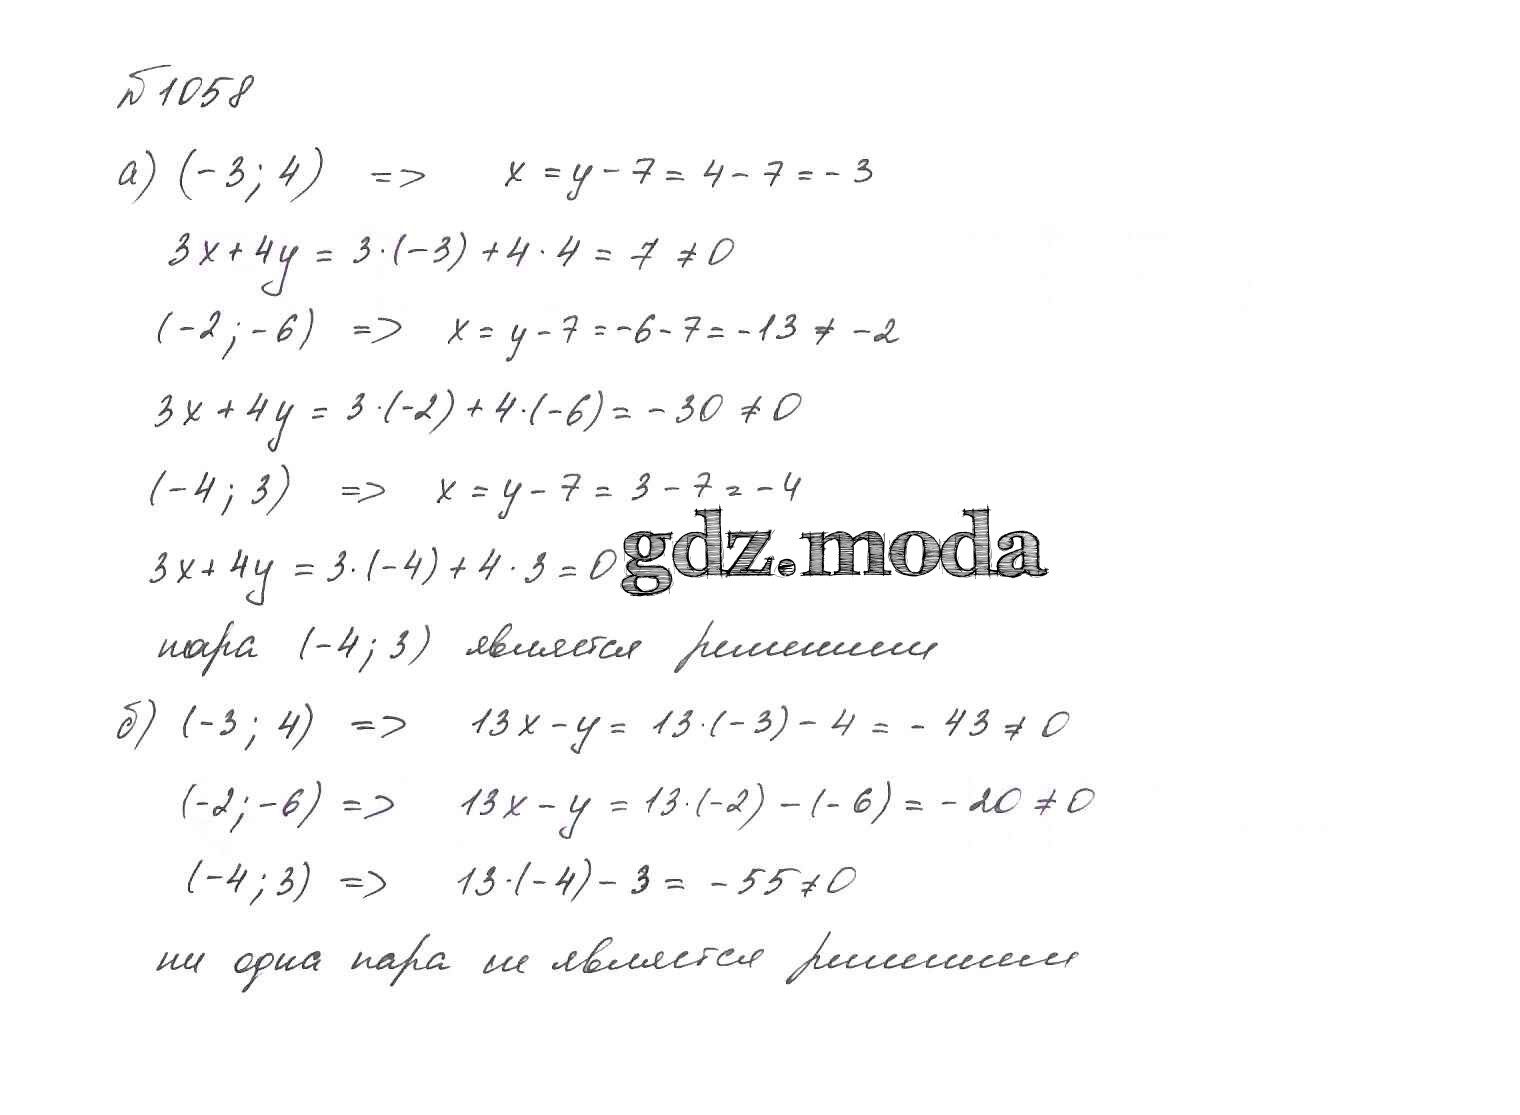 №1058
а) (-3; 4) => x = y - 7 = 4 - 7 = -3
3x + 4y = 3·(-3) + 4·4 = 7 ≠ 0
(-2; -6) => x = y - 7 = -6 - 7 = -13 ≠ -2
3x + 4y = 3·(-2) + 4·(-6) = -30 ≠ 0
(-4; 3) => x = y - 7 = 3 - 7 = -4
3x + 4y = 3·(-4) + 4·3 = 0
gdz.moda
пара (-4; 3) является решением
б) (-3; 4) => 13x - y = 13·(-3) - 4 = -43 ≠ 0
(-2; -6) => 13x - y = 13·(-2) - (-6) = -20 ≠ 0
(-4; 3) => 13·(-4) - 3 = -55 ≠ 0
ни одна пара не является решением